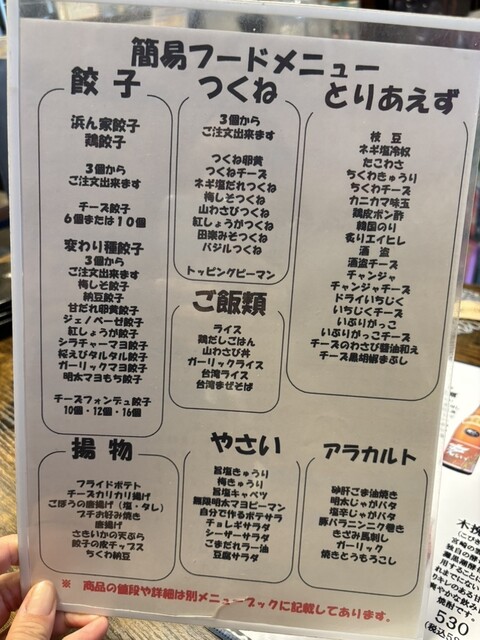 簡易フードメニュー
餃子
浜ん家餃子
鶏餃子
3個から
ご注文出来ます
チーズ餃子
6個または10個
変わり種餃子
3個から
ご注文出来ます
梅しそ餃子
納豆餃子
甘だれ卵黄餃子
ジェノベーゼ餃子
紅しょうが餃子
シラチャーマヨ餃子
桜えびタルタル餃子
ガーリックマヨ餃子
明太マヨもち餃子
チーズフォンデュ餃子
10個・12個・16個
つくね
3個から
ご注文出来ます
つくね卵黄
つくねチーズ
ネギ塩だれつくね
梅しそつくね
山わさびつくね
紅しょうがつくね
田楽みそつくね
バジルつくね
トッピングピーマン
ご飯類
ライス
鶏だしごはん
山わさび丼
ガーリックライス
台湾ライス
台湾まぜそば
とりあえず
枝豆
ネギ塩冷奴
たこわさ
ちくわきゅうり
ちくわチーズ
カニカマ味玉
鶏皮ポン酢
韓国のり
炙りエイヒレ
酒盗
酒盗チーズ
チャンジャ
チャンジャチーズ
ドライいちじく
いちじくチーズ
いぶりがっこ
いぶりがっこチーズ
チーズのわさび醤油和え
チーズ黒胡椒まぶし
揚物
フライドポテト
チーズカリカリ揚げ
ごぼうの唐揚げ（塩・タレ）
プチお好み焼き
唐揚げ
さきいかの天ぷら
餃子の皮チップス
ちくわ納豆
やさい
旨塩きゅうり
梅きゅうり
旨塩キャベツ
無限明太マヨピーマン
自分で作るポテサラ
チョレギサラダ
シーザーサラダ
ごまだれラー油
豆腐サラダ
アラカルト
砂肝ごま油焼き
明太じゃがバタ
塩辛じゃがバタ
豚バラニンニク巻き
きざみ馬刺し
ガーリック
焼きとうもろこし
※ 商品の値段や詳細は別メニューブックに記載してあります。
木挽
(こびき
宮崎の雲
独自の酵
焼酎です。
530
(税込5